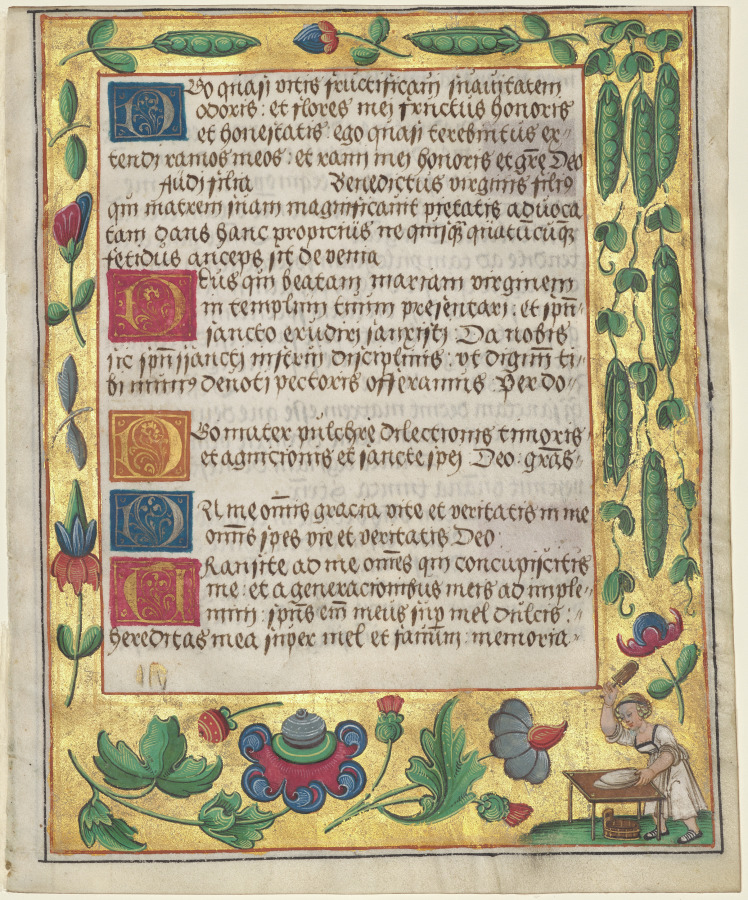 EGo quasi vitis fructificaui suauitatem
odoris : et flores mei fructus honoris
et honestatis ego quasi terebintus ex=
tendi ramos meos : et rami mei honoris et grẽ Deo
Audi filia Benedictus virginis filiꝰ
qui matrem suam magnificauit pietatis aduoca
tam dans hanc propicius ne quisqȝ quãtũcũqȝ
fetidus anceps sit de venia
Deus qui beatam mariam virginem
in templum tuum presentari : et spũ
sancto erudiri sanxisti : Da nobis
sic spũ sancti instrui disciplinis : vt dignũ ti=
bi munꝰ deuoti pectoris offeramus Per do=
EGo mater pulchrę dilectionis timoris
et agnicionis et sancte spei Deo : grãs=
IN me om̃is gracia vite et veritatis in me
om̃is spes vie et veritatis Deo
TRansite ad me om̃es qui concupiscitis
me : et a generacionibus meis ad imple=
mini : spũs em̃ meus sup̃ mel dulcis :
hereditas mea super mel et fauum : memoria=